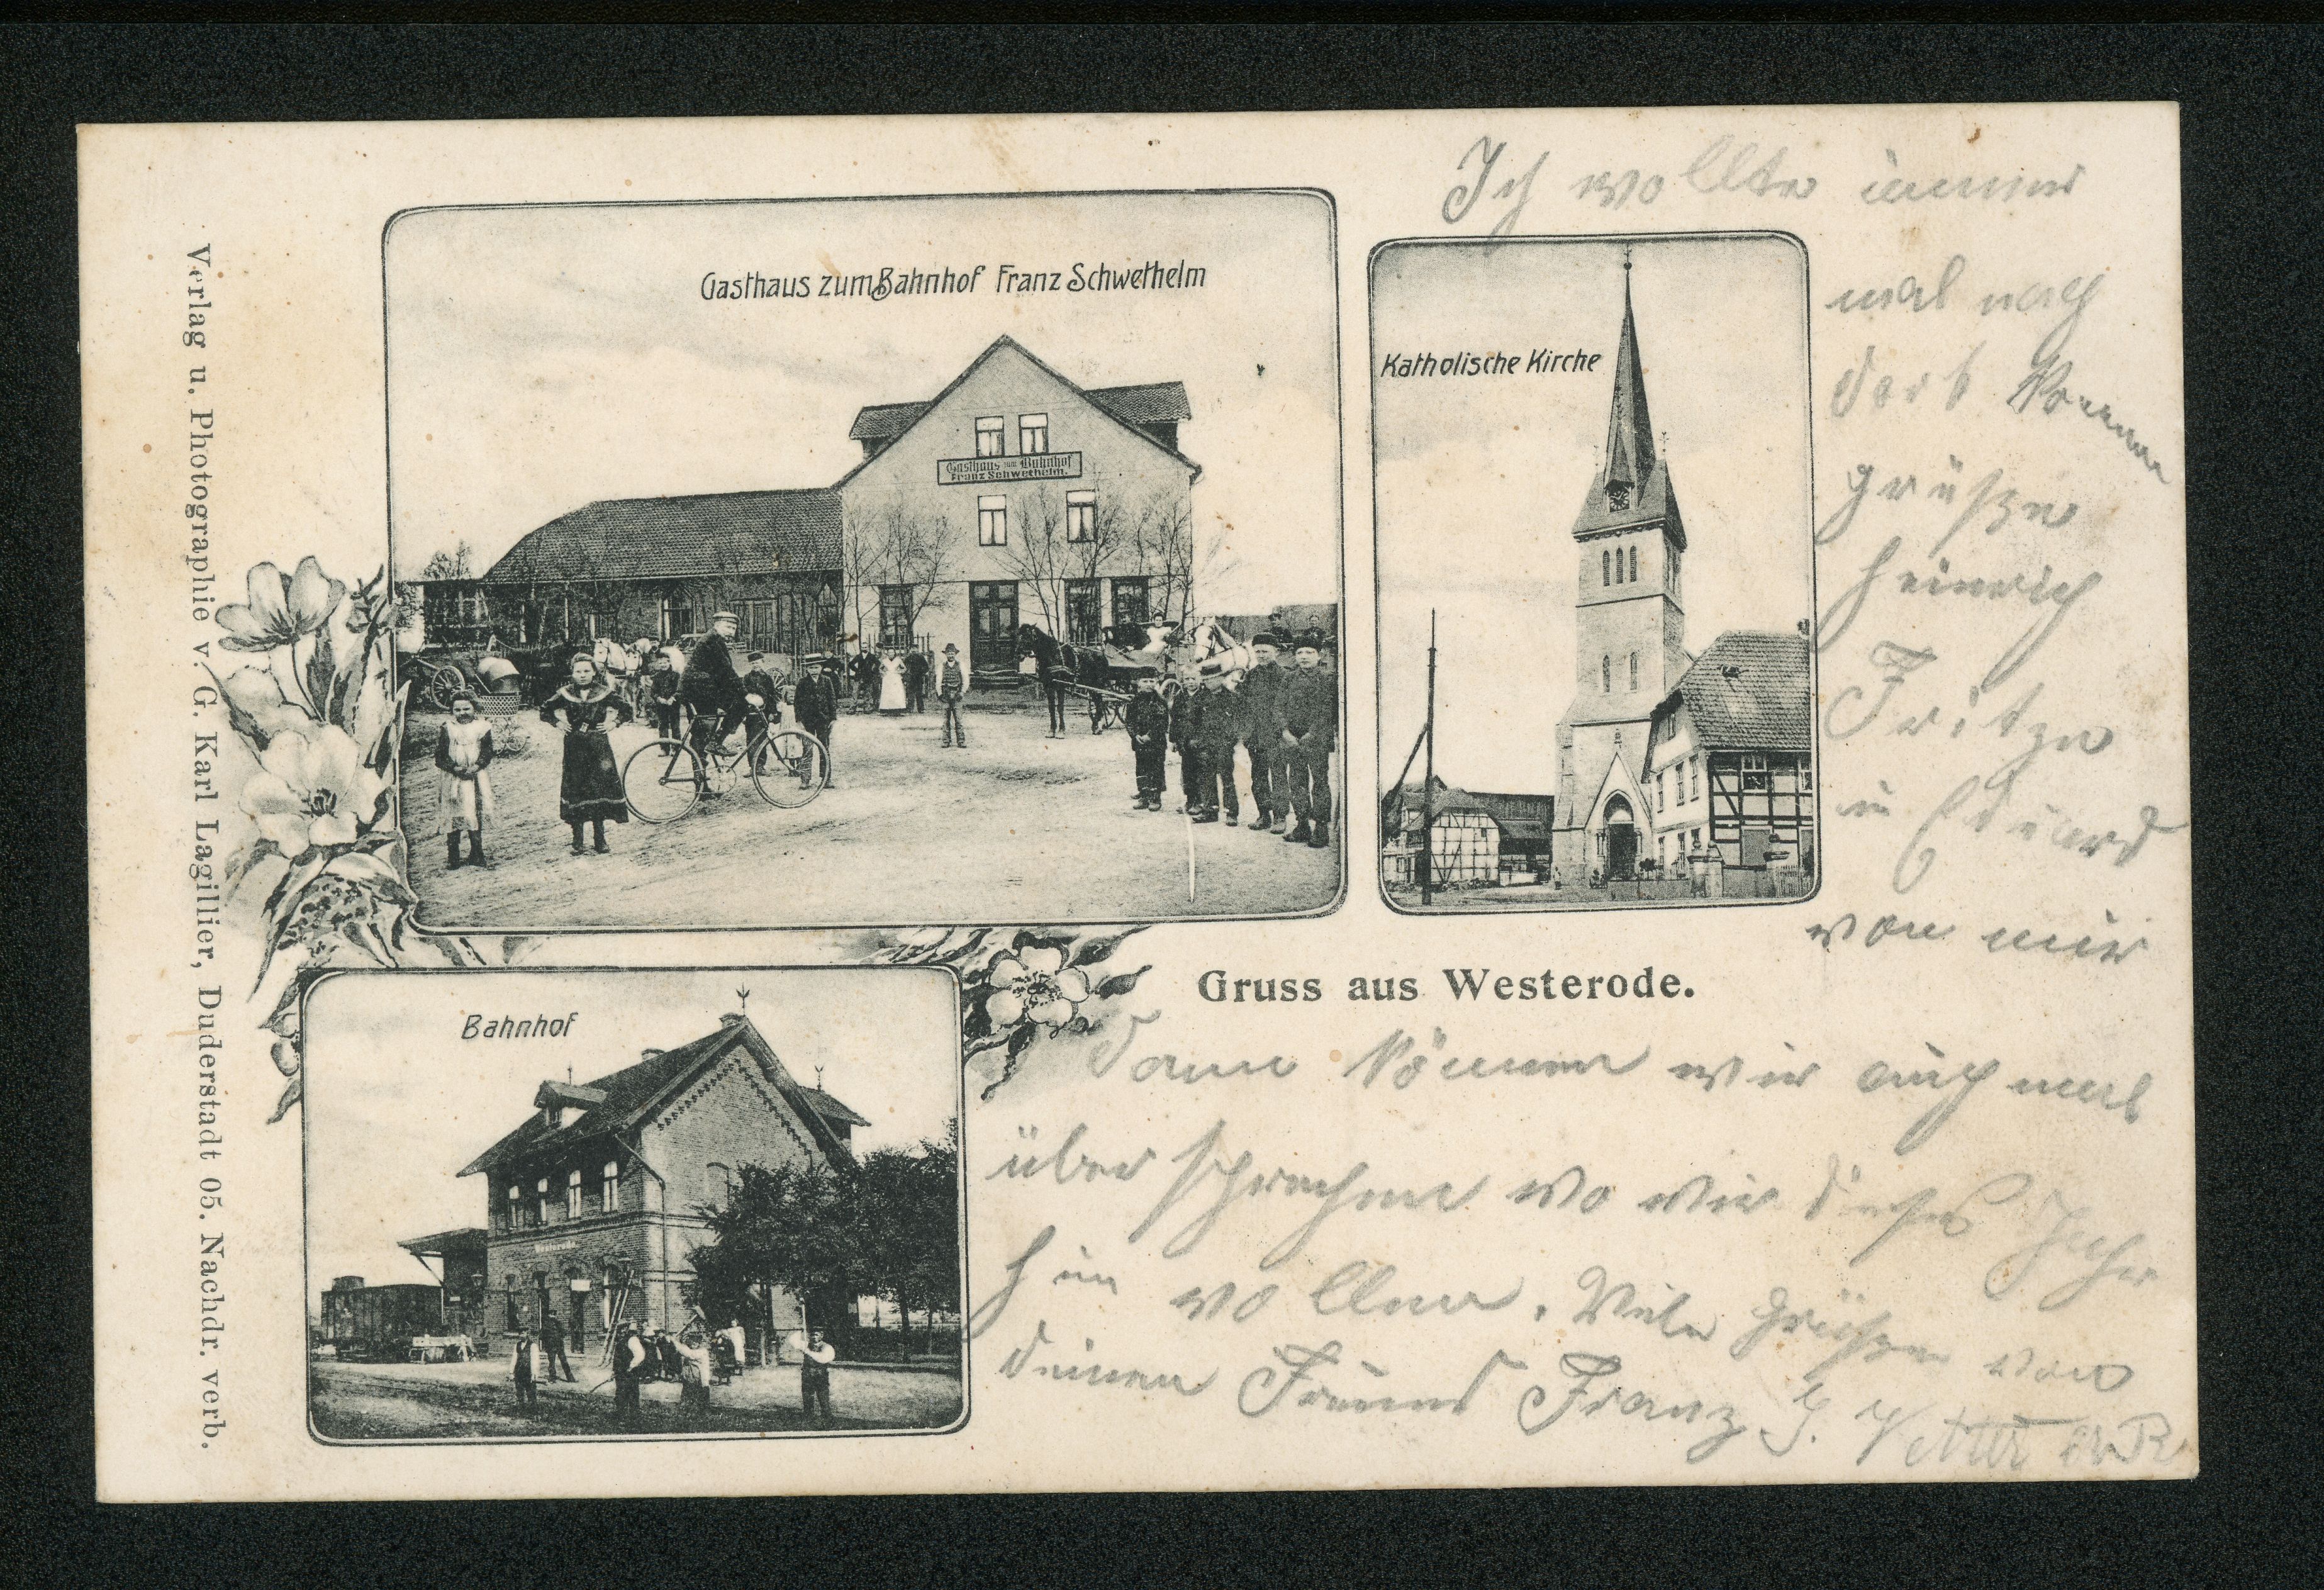 Ich wollte immer
mal nach
dort kommen
grüße
Heinrich
Fritze
u Eduard
von mir
dann können wir auch mal
über sprechen wo wir dieses Jahr
hin wollen. Viele Grüßen von
deinen Freund Franz
Gasthaus zum Bahnhof Franz Schwethelm
Gasthaus zum Bahnhof
Franz Schwethelm.
Katholische Kirche
Gruss aus Westerode.
Bahnhof
Westerode
Verlag u. Photographie v. G. Karl Lagillier, Duderstadt 05. Nachdr. verb.